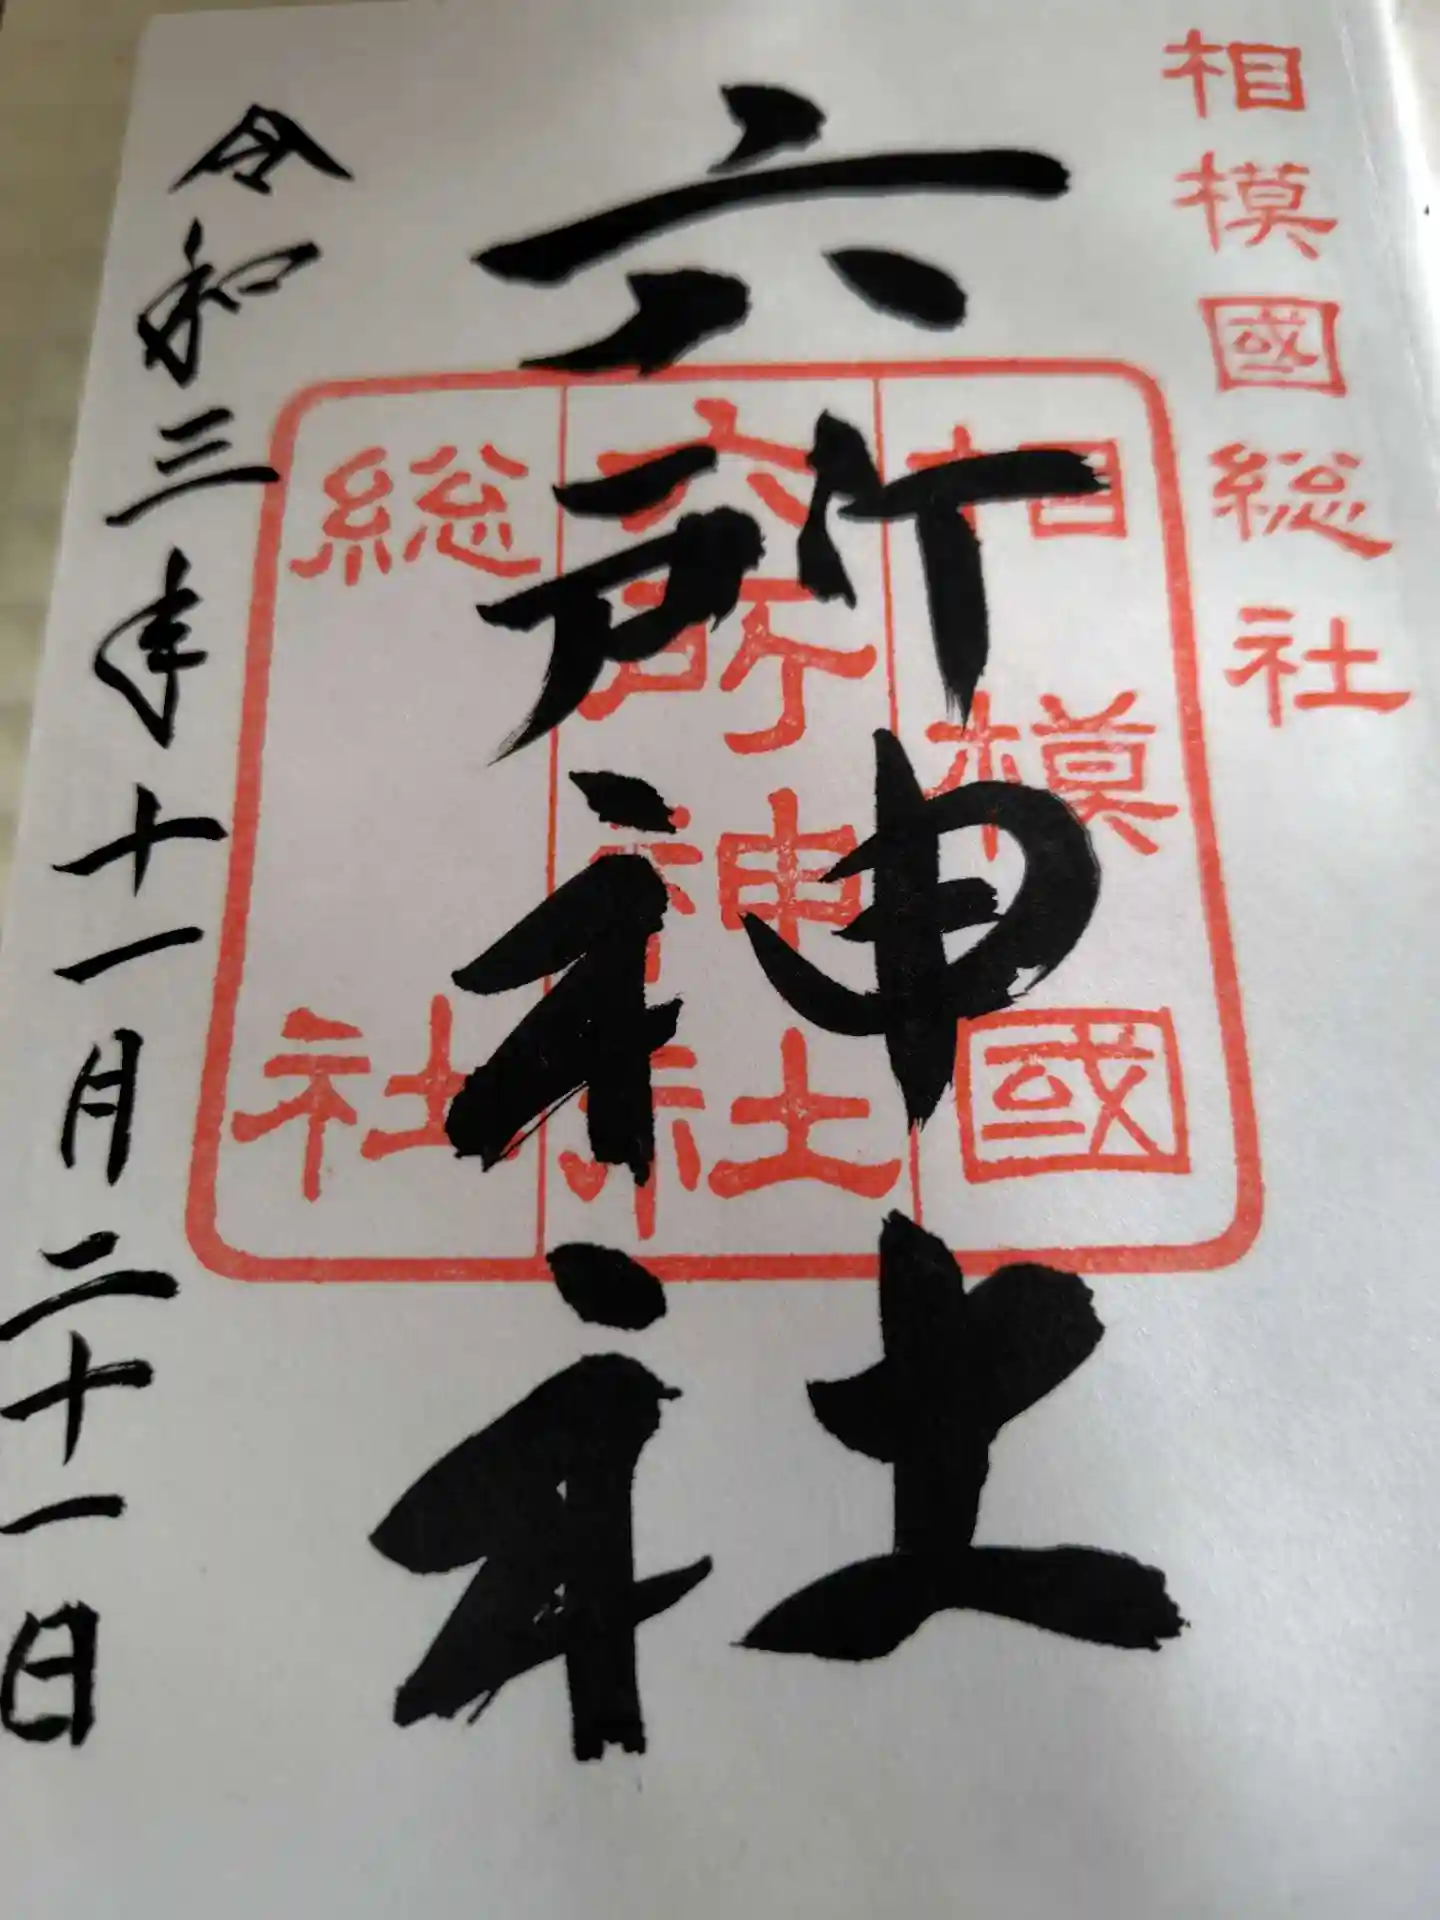 相模國総社
六所神社
相模國
六所神社
総社
令和三年十一月二十一日